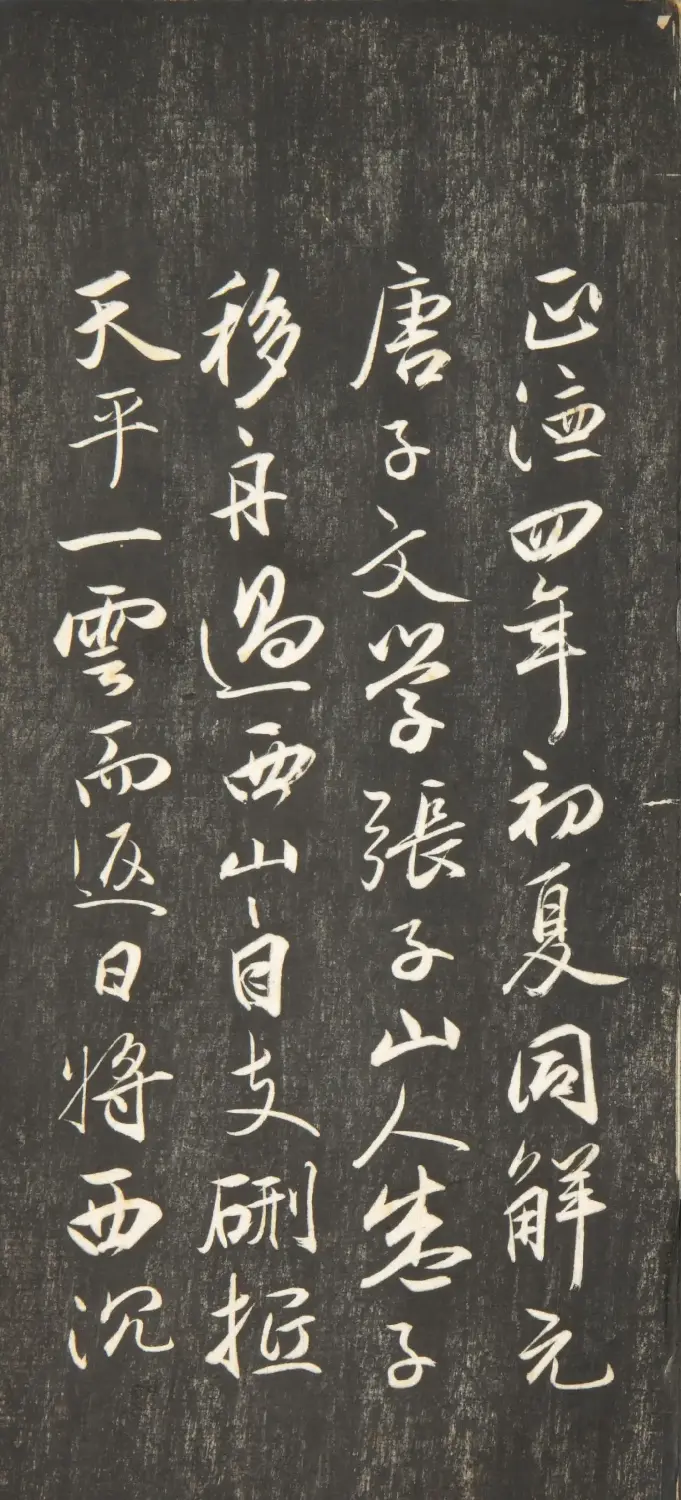 正德四年初夏同解元
唐子文学張子山人朱子
移舟過西山山自支硎抵
天平一雲而返日将西沉